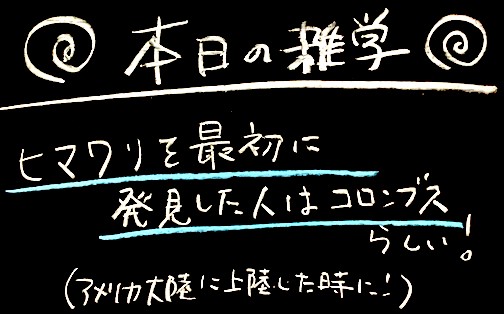 本日の雑学
ヒマワリを最初に
発見した人はコロンブス
らしい!
(アメリカ大陸に上陸した時に!)